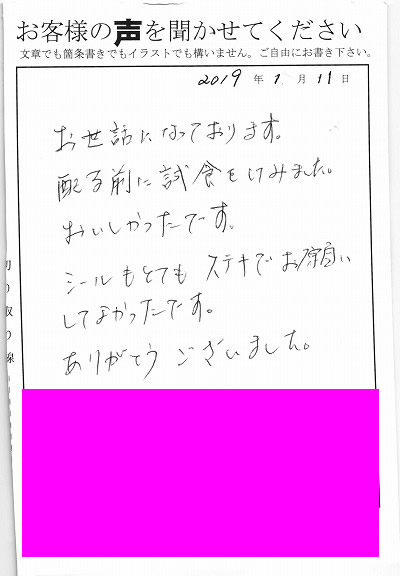 お客様の声を聞かせてください
文章でも箇条書きでもイラストでも構いません。ご自由にお書き下さい。
2019年1月11日
お世話になっております。
配る前に試食をしてみました。
おいしかったです。
シールもとてもステキでお願い
してよかったです。
ありがとうございました。
切り取り線